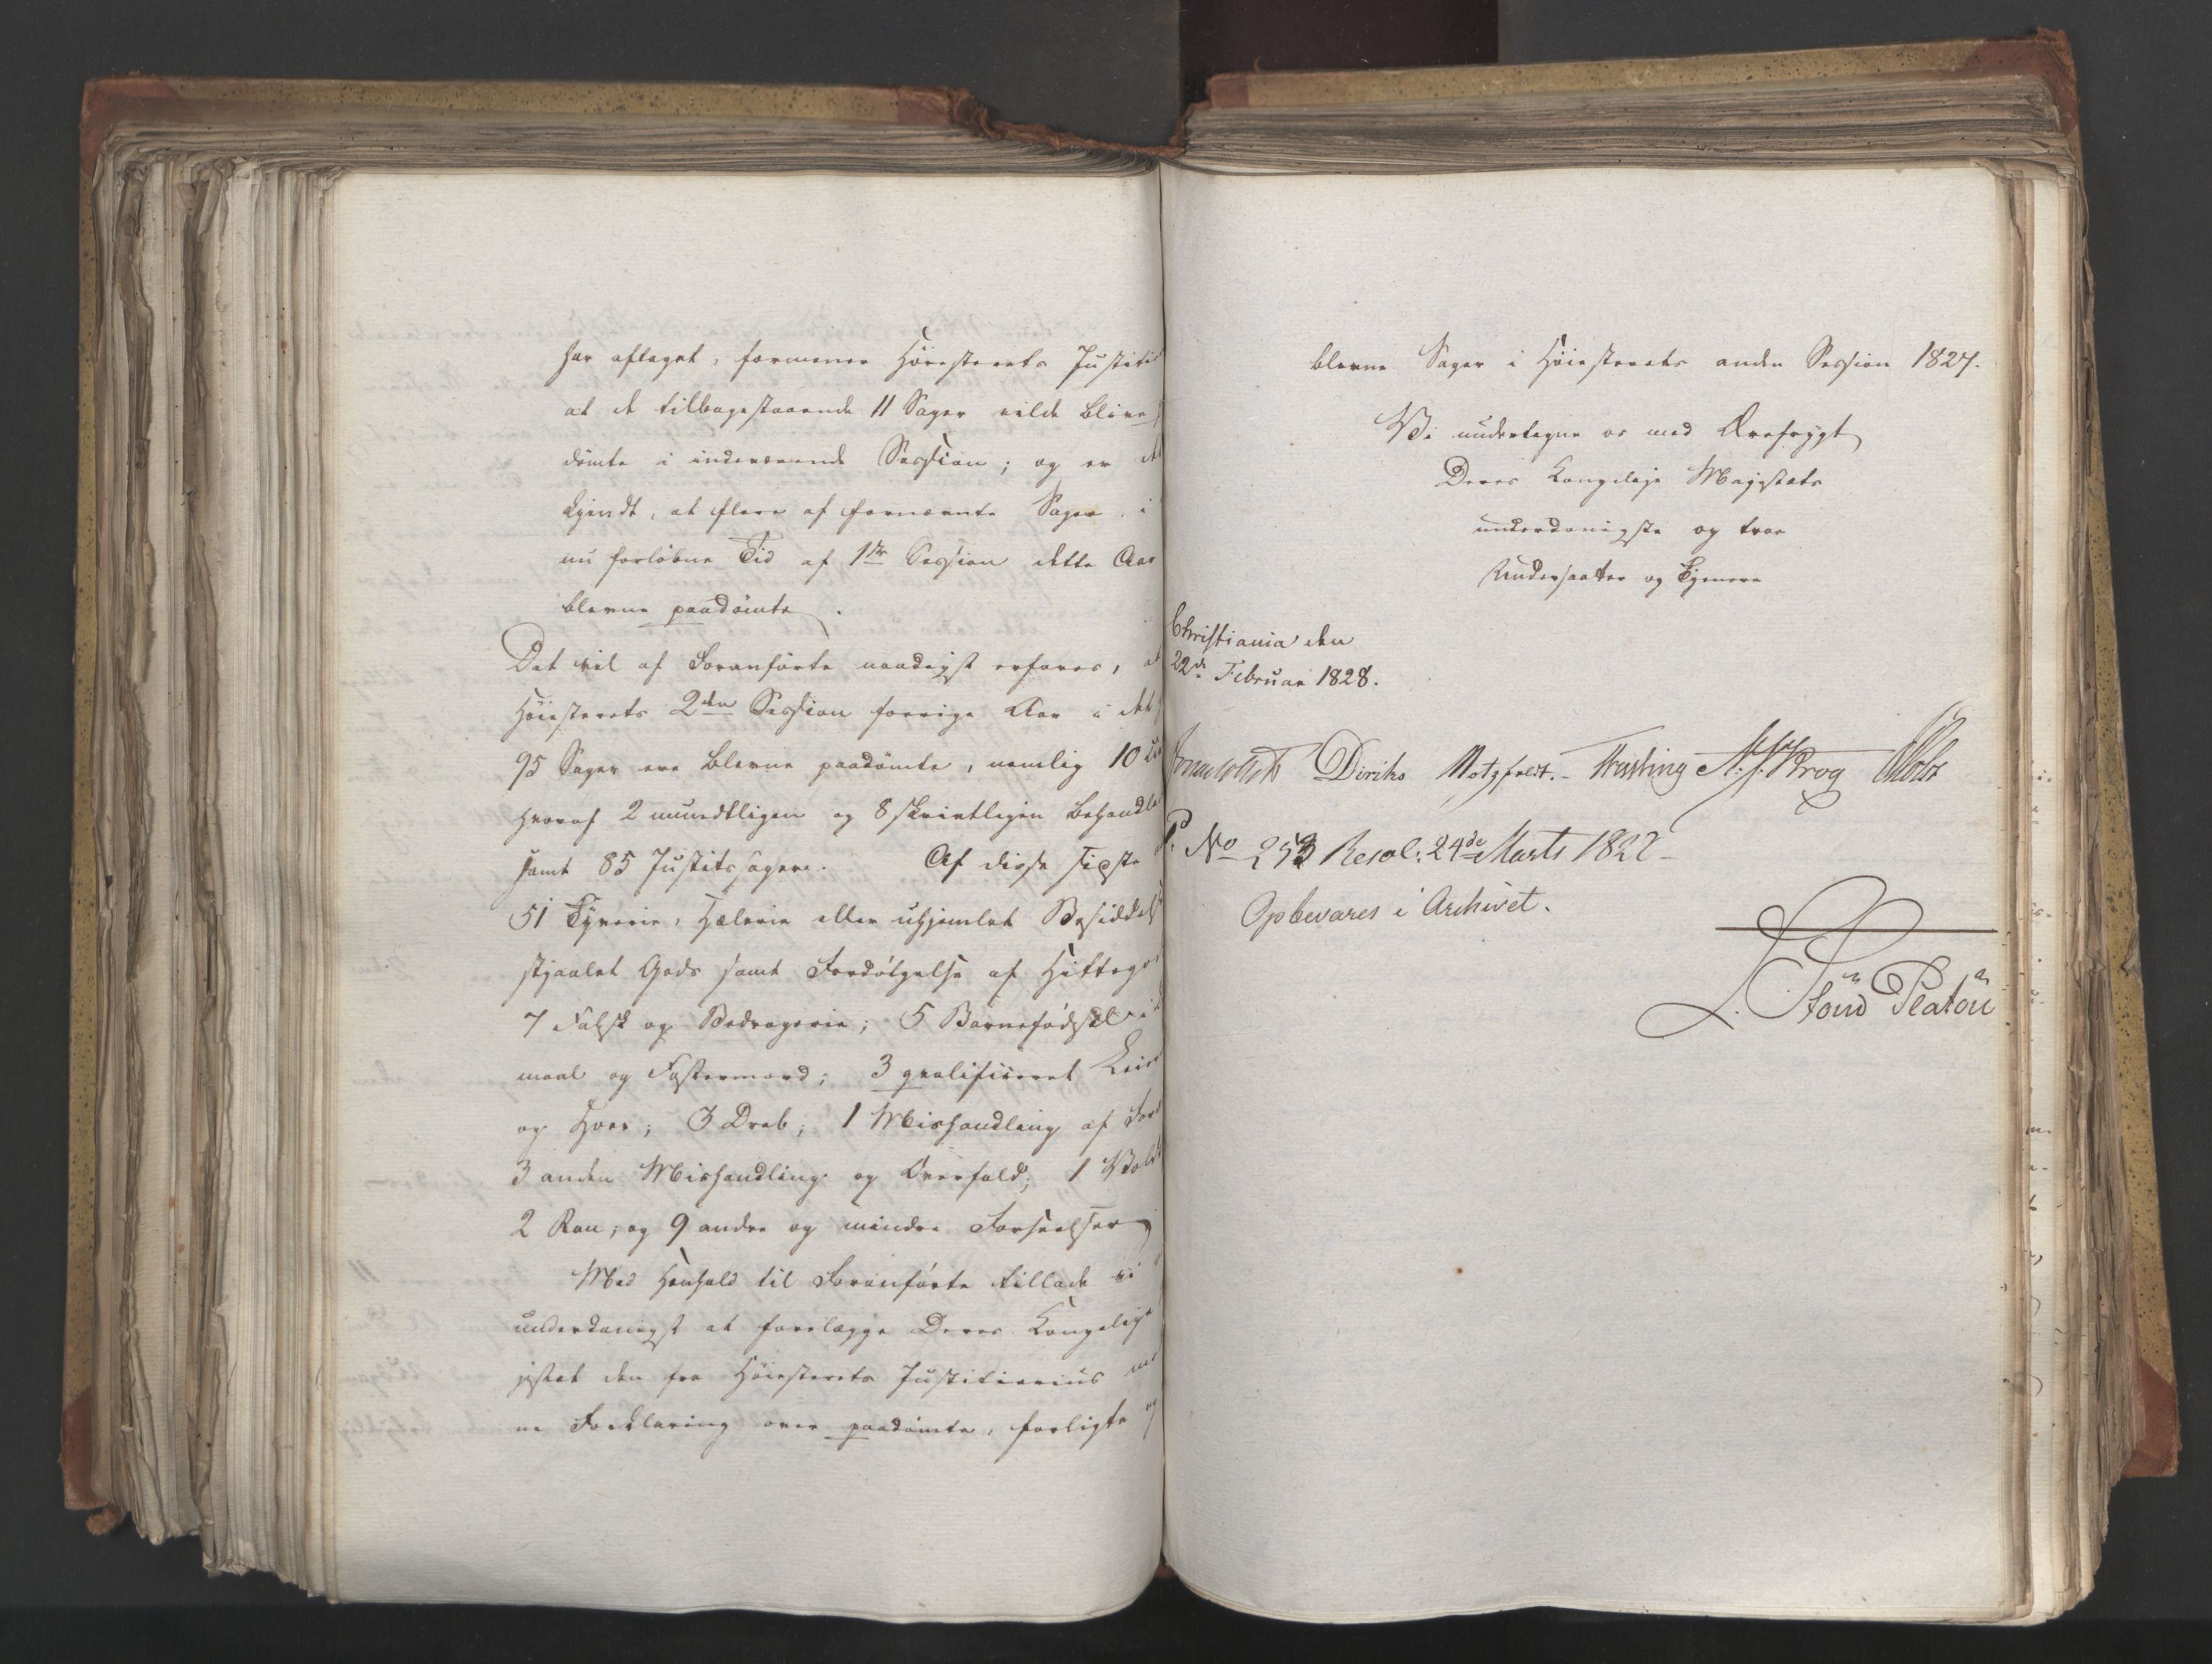 har aftaget, formener Høiesterets Justiti
at de tilbagestaaende 11 Sager vilde blive
dømte i indeværende Session; og er de
kjendt, at flere af fornævnte Sager i
nu forløbne Tid af 1ste Session dette Aar
blevne paadømte.
Det vil af Foranførte naadigst erfares, at
Høiesterets 2den Session forrige Aar i det
95 Sager ere blevne paadømte, nemlig 10
hvoraf 2 mundtligen og 8 skrivtligen behandle
samt 85 Justitssager. Af disse sidste
51 Tyverie, Hælerie eller uhjemlet Besiddels
stjaalet Gods samt Fordølgelse af Hittego
7 Falsk og Bedragerie; 5 Barnefødsel i
maal og Fostermord; 3 qvalificeret Leier
og Hoer; 3 Drab; 1 Mishandling af For
3 anden Mishandling og Overfald; 1 Volds
2 Ran; og 9 andre og mindre Forseelser
Med Henhold til Foranførte tillade vi
underdanigst at forelægge Deres Kongelige
jestæt den fra Høiesterets Justitiarius
ne Forklaring over paadømte, forligte og
blevne Sager i Høiesterets anden Session 1827.
Vi undertegne os med Ærefrygt
Deres Kongelige Majestæts
underdanigste og troe
Undersaatter og Tjenere
Christiania den
22de Februar 1828.
Diriks Motzfeldt. Treschow Krog
P. No 253 Resol: 24de Marts 1828
Opbevares i Archivet.